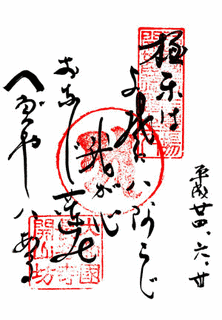 平成廿四、六、廿
極楽は
よ所にハ阿らじ
わが心
おなじ蓮の
へだてやハある
開山坊